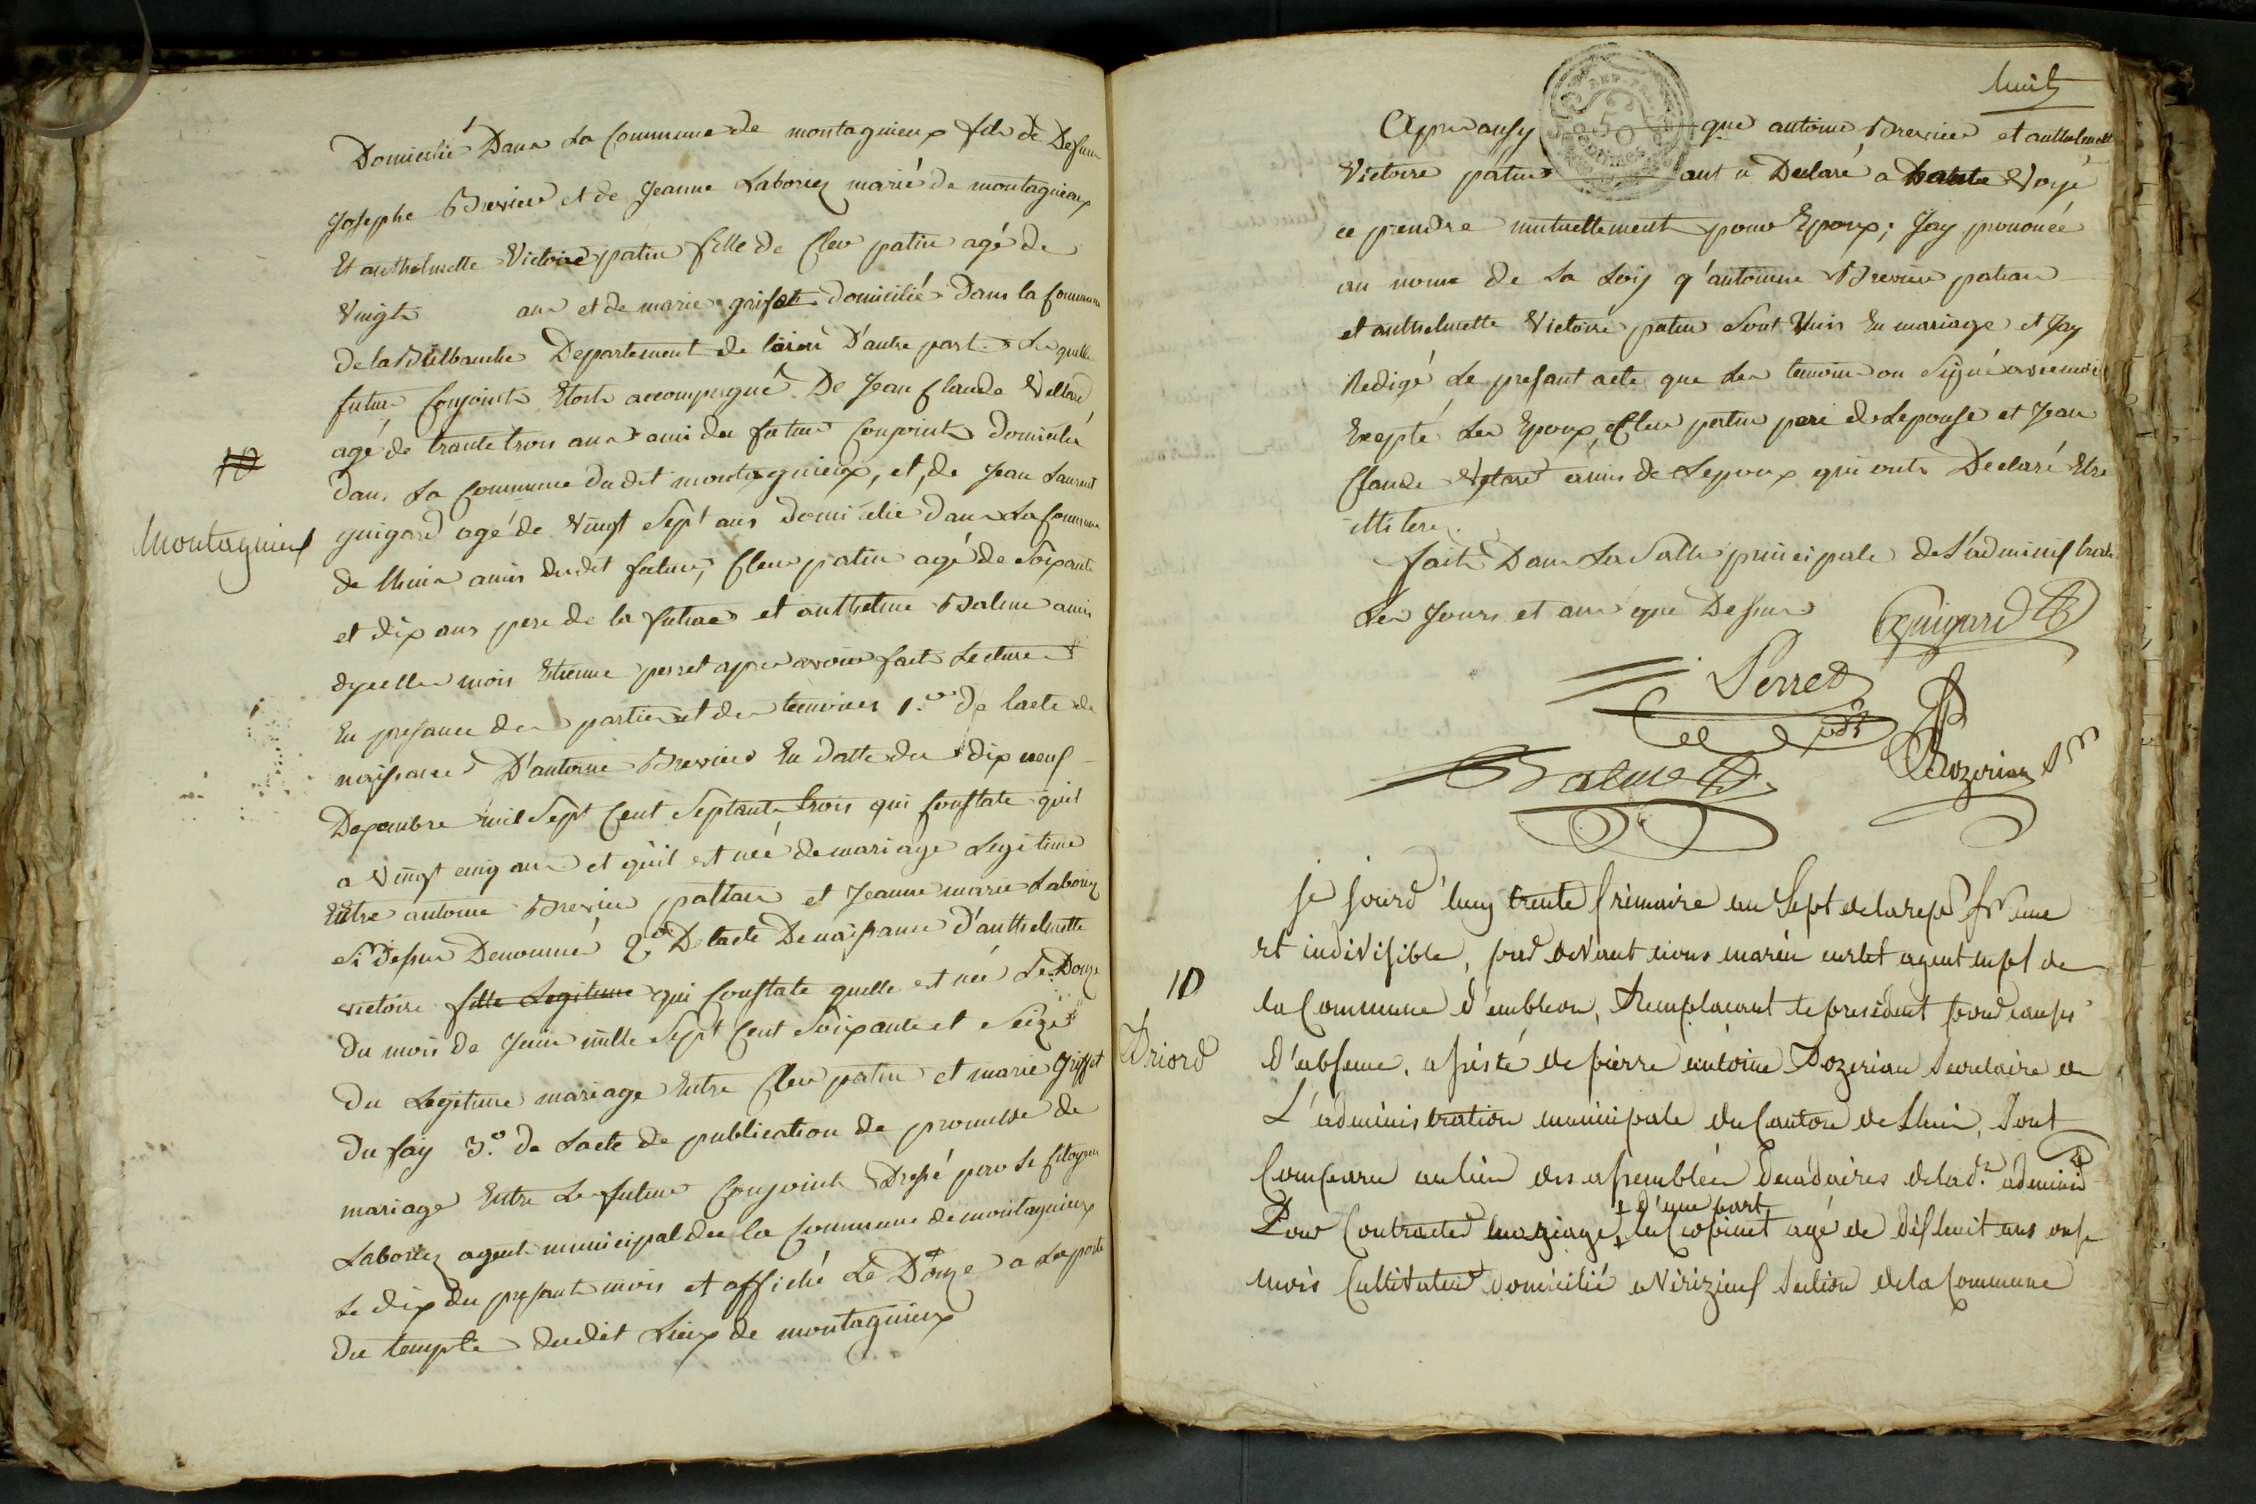 Domicilié Dans La Commune de montagnieux fils de Defunt
Josephe Brevier et de Jeanne Laboriez marié de montagnieux
Et anthelmette Victoire patin fille de Cleu patin agé de
Vingts ans et de marie grifat domicilié Dans la Commune
de la Departement de D'autre part. Le quelle
futurs Conjoints Etoste accompagné De Jean Claude
agé de trante trois ans ami du future Conjoints domicilié
dans La Commune dudit montagnieux, et, de Jean Laurent
guigard agé de Vingt Sept ans Domicilié Dans La Commune
Montagnieu
de lhuis amis dudit future, Cleu patin agé de Soixante
et dix ans pere de la future et anthelme Balme amis
dycelle mois Etienne perret apres avoir fait Lecture
En presance des parties et des temoins 1.er de lacte de
naissance D'antoine Brevier En datte du dix neuf
mil Sept Cent Septante trois qui Constate quil
a Vingt cinq ans et quil est née de mariage Legitime
Entre antoine Brevier pattan et Jeanne marie Laboriez
Si dessus Denommé 2.o De lacte De naissance d'anthelmette
victoire fille Legitime qui Constate quelle est née Le Douze
du mois de Juin mille Sept Cent Soixante et Seize
du Legitime mariage Entre Cleu patin et marie griffat
du fay 3.o de Lacte de publication de promesse de
mariage Entre Les future Conjoints Dressé par Le Citoyen
Laboriez agent municipal de la Commune de montagnieux
Le dix du presant mois et affiché Le Douze a La porte
du temple dudit Lieux de montagnieux
huit
Apres ausy que antoine Brevier et anthelmette
Victoire patin ont a Declaré a haute Voye
ce prendre mutuellement pour Epoux; Jay prononcé
au nome de La Loy q'antoinne Brevier patian
et anthelmette Victoire patin Sont Unis En mariage et Jay
Redigé Le presant acte que Les temoins on Signé avec moi
Exepté Les Epoux, Cleu patin pere de Lepouse et Jean
Claude amis de Lepoux qui ont Declaré Etre
illitere.
fait Dans La Salle principale de L'administra
Les Jours et ans que Dessus
Guigard
Perret
Balme
Bozerian
10
Briord
je jourd'huy trente frimaire an Sept de la rep. fr. une
et indivisible, par devant nous marin agent mpl de
la Commune d' remplacant le president pour cause
d'absence. assisté de pierre antoine Bozerian Secretaire de
L'administration municipale du Canton de Lhuis, Sont
Comparu au lieu des assemblées decadaires de lad.e adminis
Pour Contracter mariage, + d'une part agé de dishuit ans onse
mois Cultivateur domicilié a Verizieu Section de la Commune